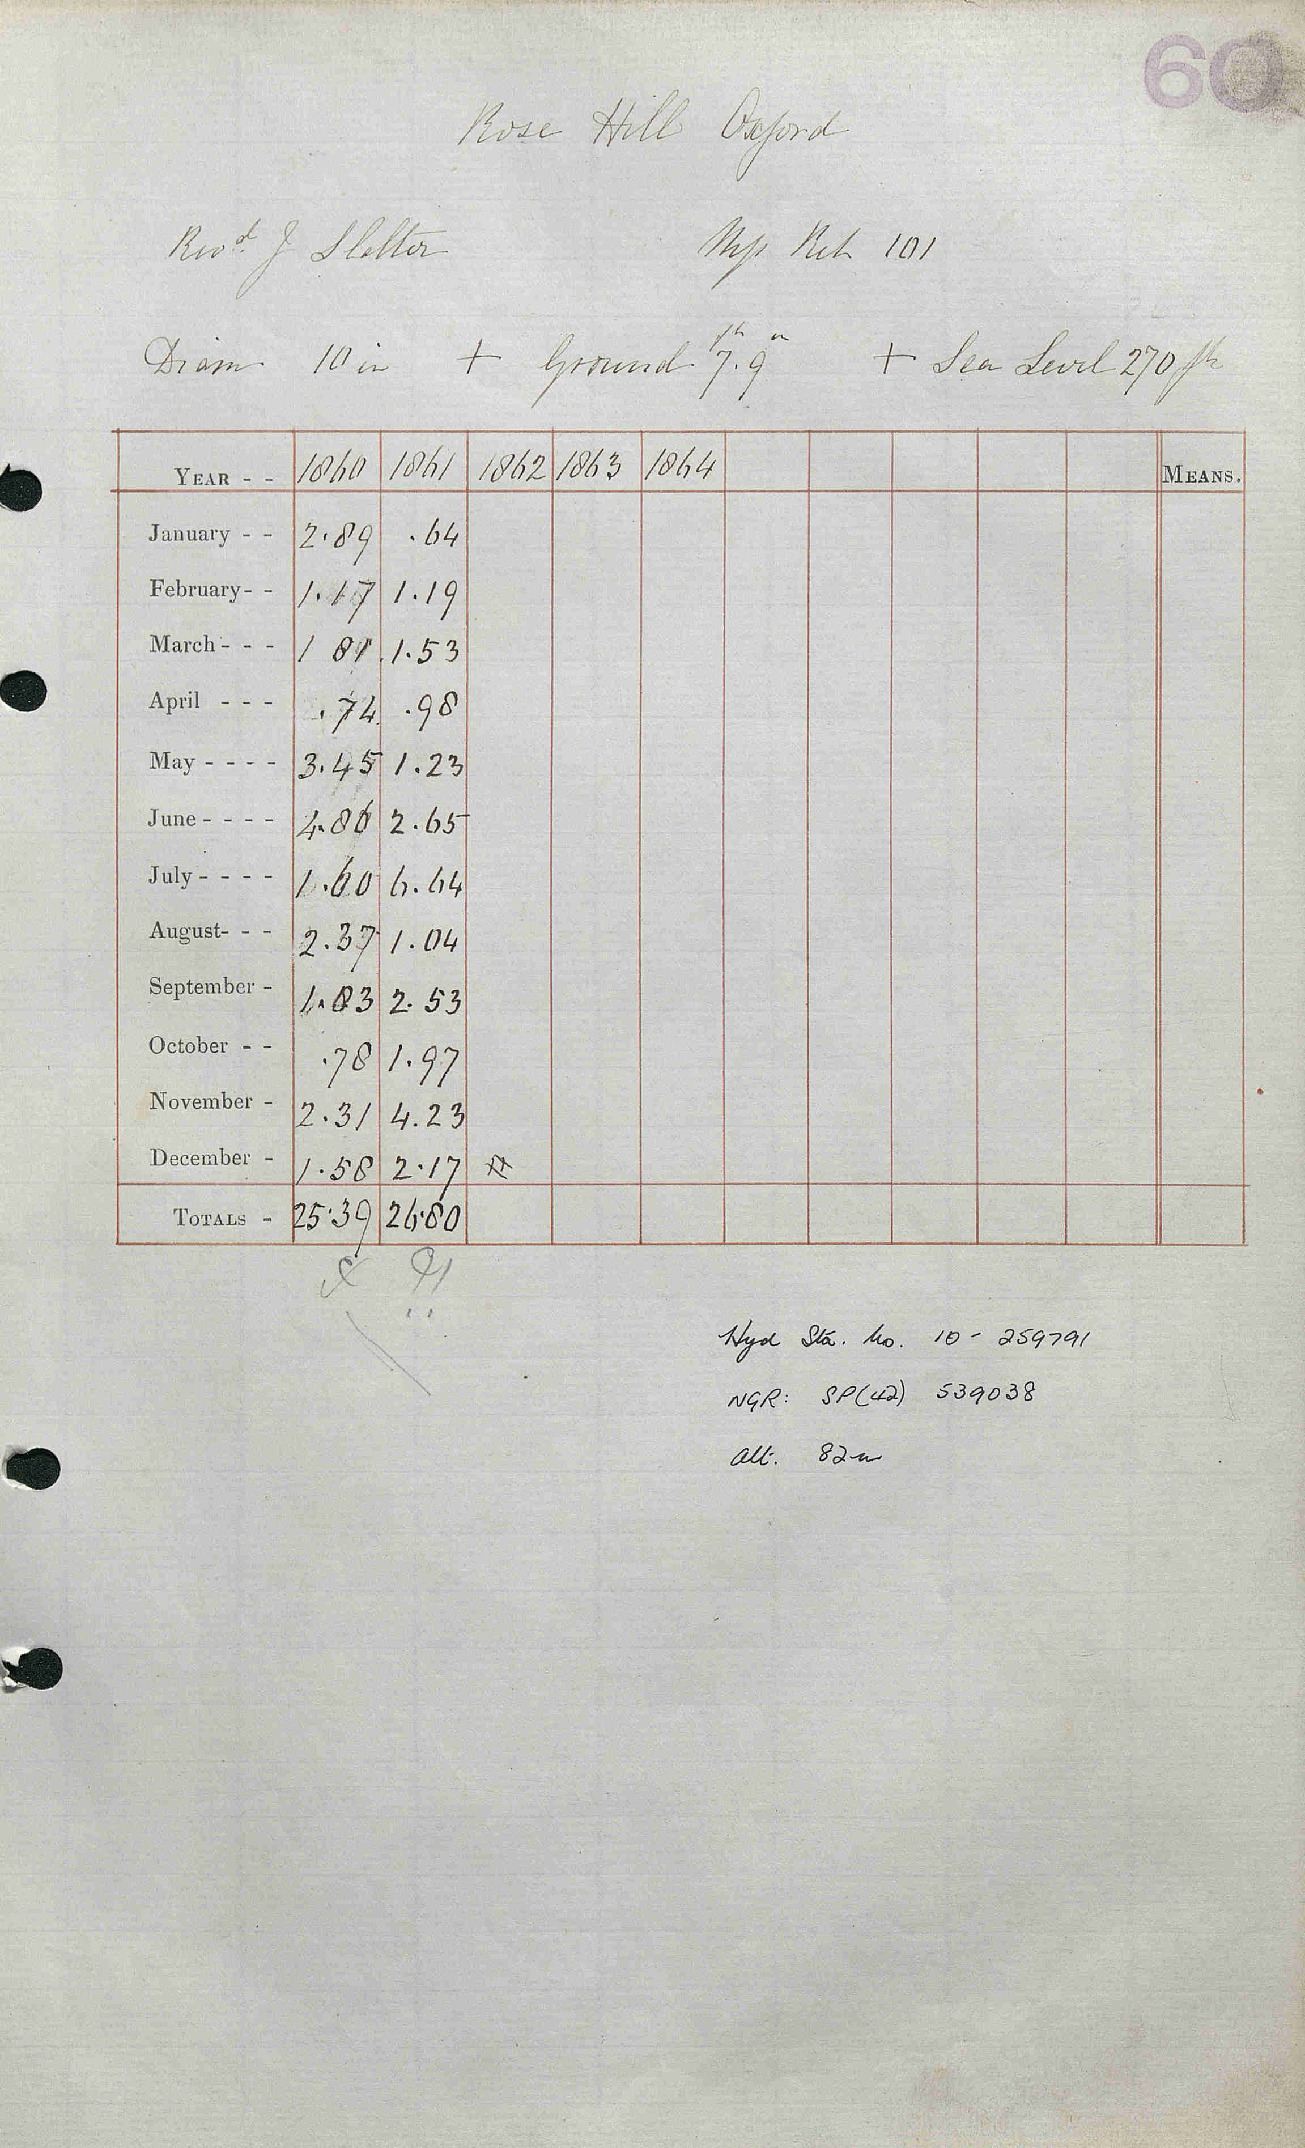 60
Rose Hill Oxford
Revd. J Slatter
Ret 101
Diam 10 in + Ground 7 ft. 9 in + Sea Level 270 ft
YEAR - - 1860 1861 1862 1863 1864 MEANS.
January - - 2.89 .64
February - - 1.17 1.19
March - - - 1 81 1.53
April - - - .74 .98
May - - - - 3.45 1.23
June - - - - 4.86 2.65
July - - - - 1.60 6.64
August - - - 2.37 1.04
September - 1.83 2.53
October - - .78 1.97
November - 2.31 4.23
December - 1.58 2.17
TOTALS - 25.39 26.80
Hyd Sta. No. 10 - 259791
NGR: SP(42) 539038
Alt. 82m